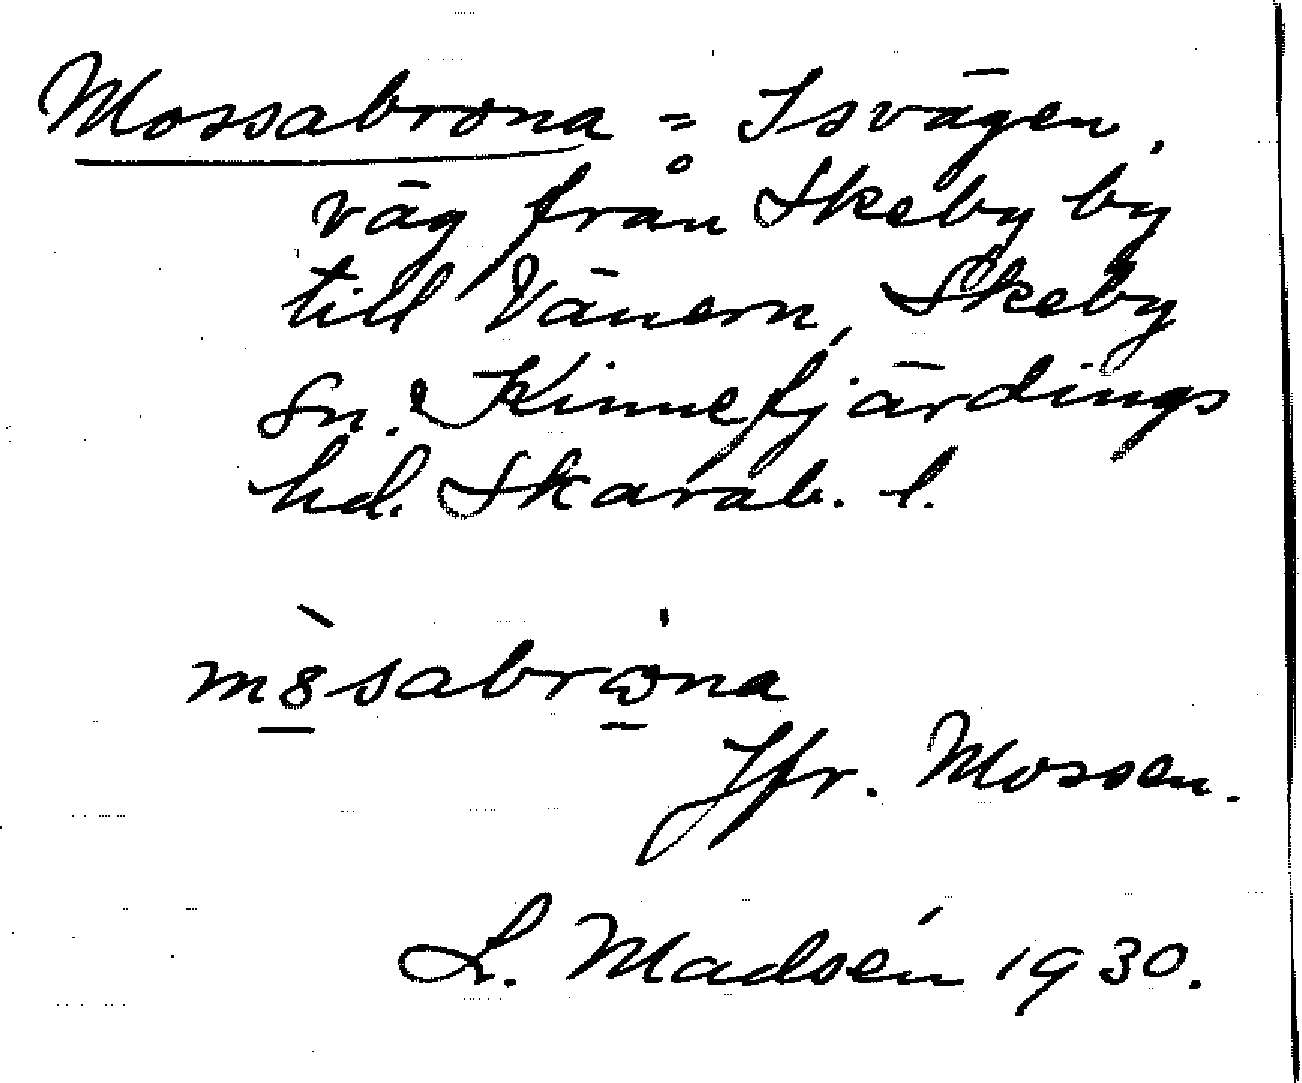 Mossabrona = Isvägen,
väg från Skeby by
till Vänern, Skeby
sn. Kinnefjärdings
hd. Skarab. l.
Jfr. Mossen.
L. Madsén 1930.